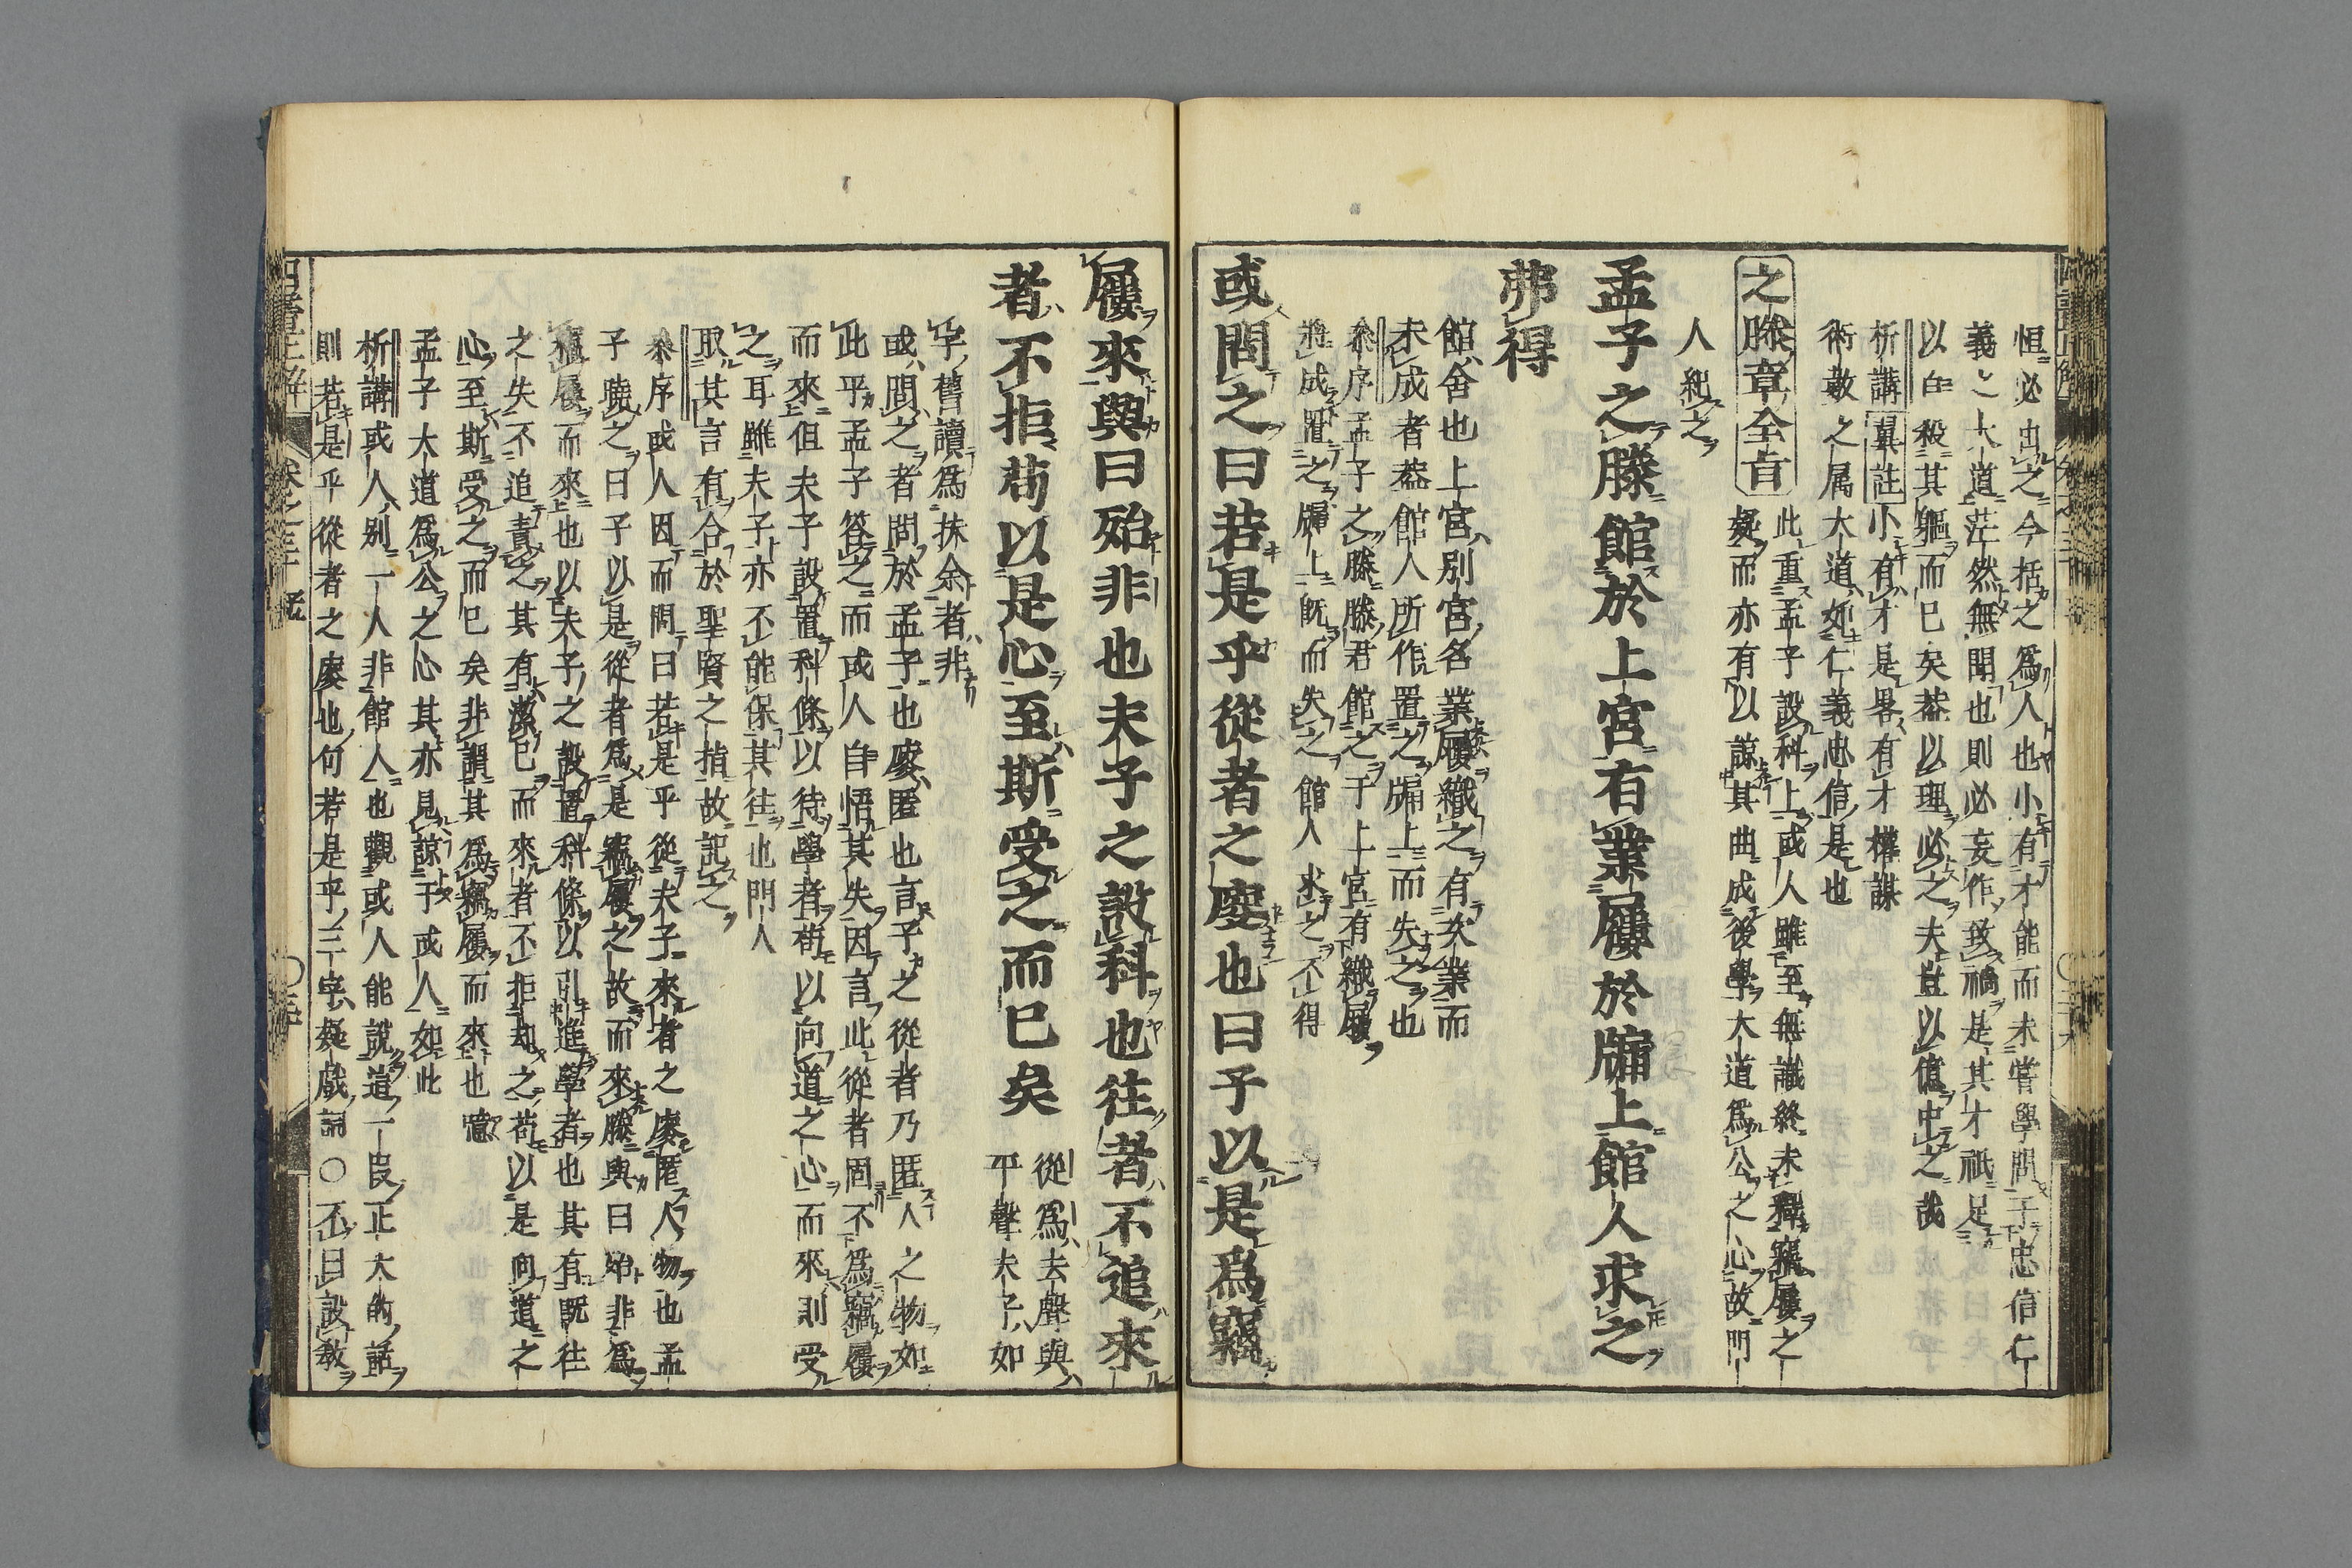 恒必出之今括之爲人也小有才能而未嘗學問于忠信仁
義之大道茫然無聞也則必妄作致禍是其才祇足
以自殺其軀而已矣葢以理必之夫豈以億中之哉
析講翼註小有才是畧有才權謀
術數之属大道如仁義忠信是也
之滕章全旨
此重孟子設科上或人雖至無識終未釋竊屨之
疑而亦有以諒其曲成後學大道爲公之心故門
人紀之
孟子之滕館於上宮有業屨於牖上館人求之
弗得
館舍也上宮別宮名業屨織之有次業而
未成者葢館人所作置之牖上而失之也
泰序孟子之滕滕君館之于上宮有織屨
將成置之牖上旣而失之館人求之不得
或問之曰若是乎從者之廋也曰子以是爲竊
屨來與曰殆非也夫子之設科也往者不追來
者不拒苟以是心至斯受之而已矣
從爲去聲與
平聲夫子如
字舊讀爲扶余者非
或問之者問於孟子也廋匿也言子之從者乃匿人之物如
此乎孟子答之而或人自悟其失因言此從者固不爲竊屨
而來但夫子設置科條以待學者苟以向道之心而來則受
之耳雖夫子亦不能保其往也門人
取其言有合於聖賢之指故記之
泰序或人因而問曰若是乎從夫子來者之廋匿人物也孟
子曉之曰子以是從者爲是竊屨之故而來滕與曰殆非爲
竊屨而來也以夫子之設置科條以引進學者也其有旣往
之失不追責之其有潔已而來者不拒却之苟以是向道之
心至斯受之而已矣非謂其爲竊屨而來也噫
孟子大道爲公之心其亦見諒于或人如此
析講或人別一人非館人也觀或人能說道一段正大的話
則若是乎從者之廋也句若是乎三字疑戲詞○不曰設敎
四書正解
卷之三十
孟